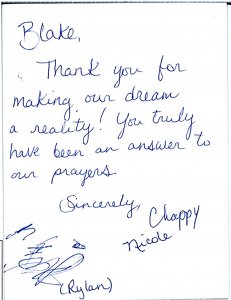 Blake,
Thank you for
making our dream
a reality! You truly
have been an answer to
our prayers
Sincerely,
Chappy
Nicole
(Rylan)